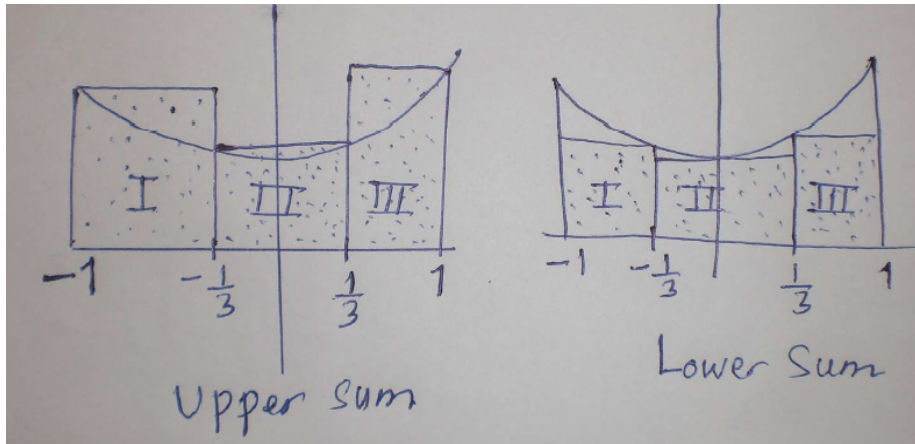 I II III
-1 -1/3 1/3 1
Upper Sum
I II III
-1 -1/3 1/3 1
Lower Sum